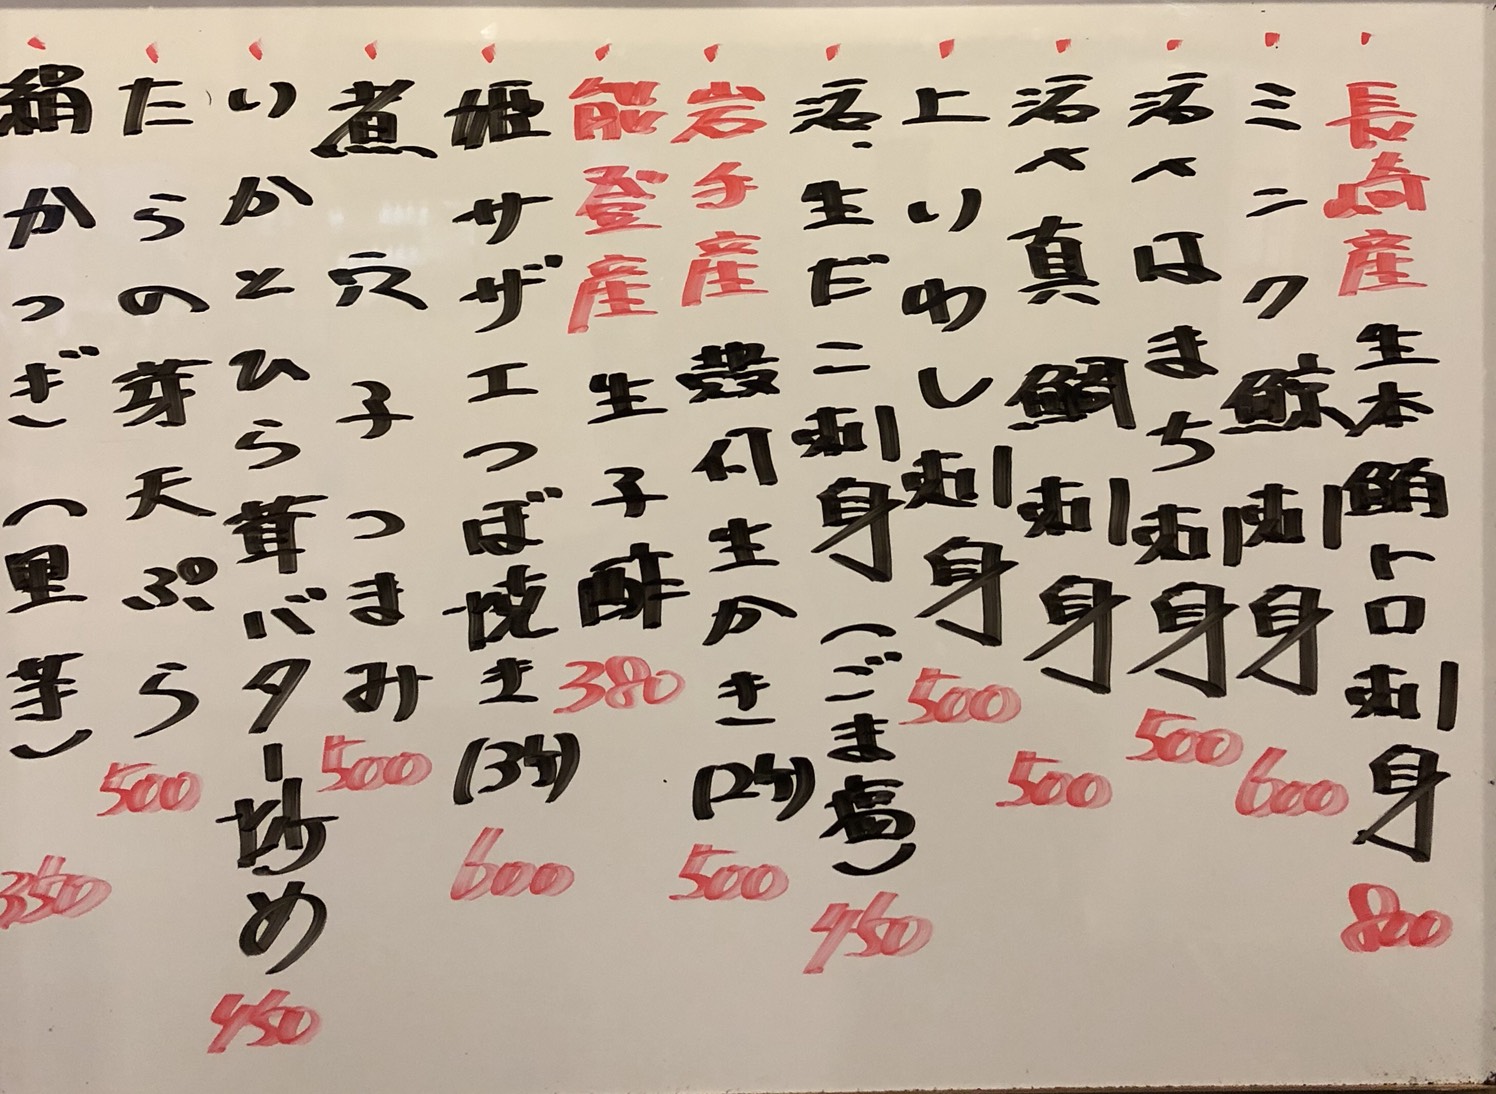 長崎産生本鮪トロ刺身 800
ミンク鯨刺身 600
活〆はまち刺身 500
活〆真鯛刺身 500
上いわし刺身 500
活・生だこ刺身（ごま塩） 450
岩手産殻付生かき(2ケ) 500
能登産生子酢 380
姫サザエつぼ焼き(3ケ) 600
煮穴子つまみ 500
いかとひら茸バター炒め 450
たらの芽天ぷら 500
絹かつぎ（里芋） 350